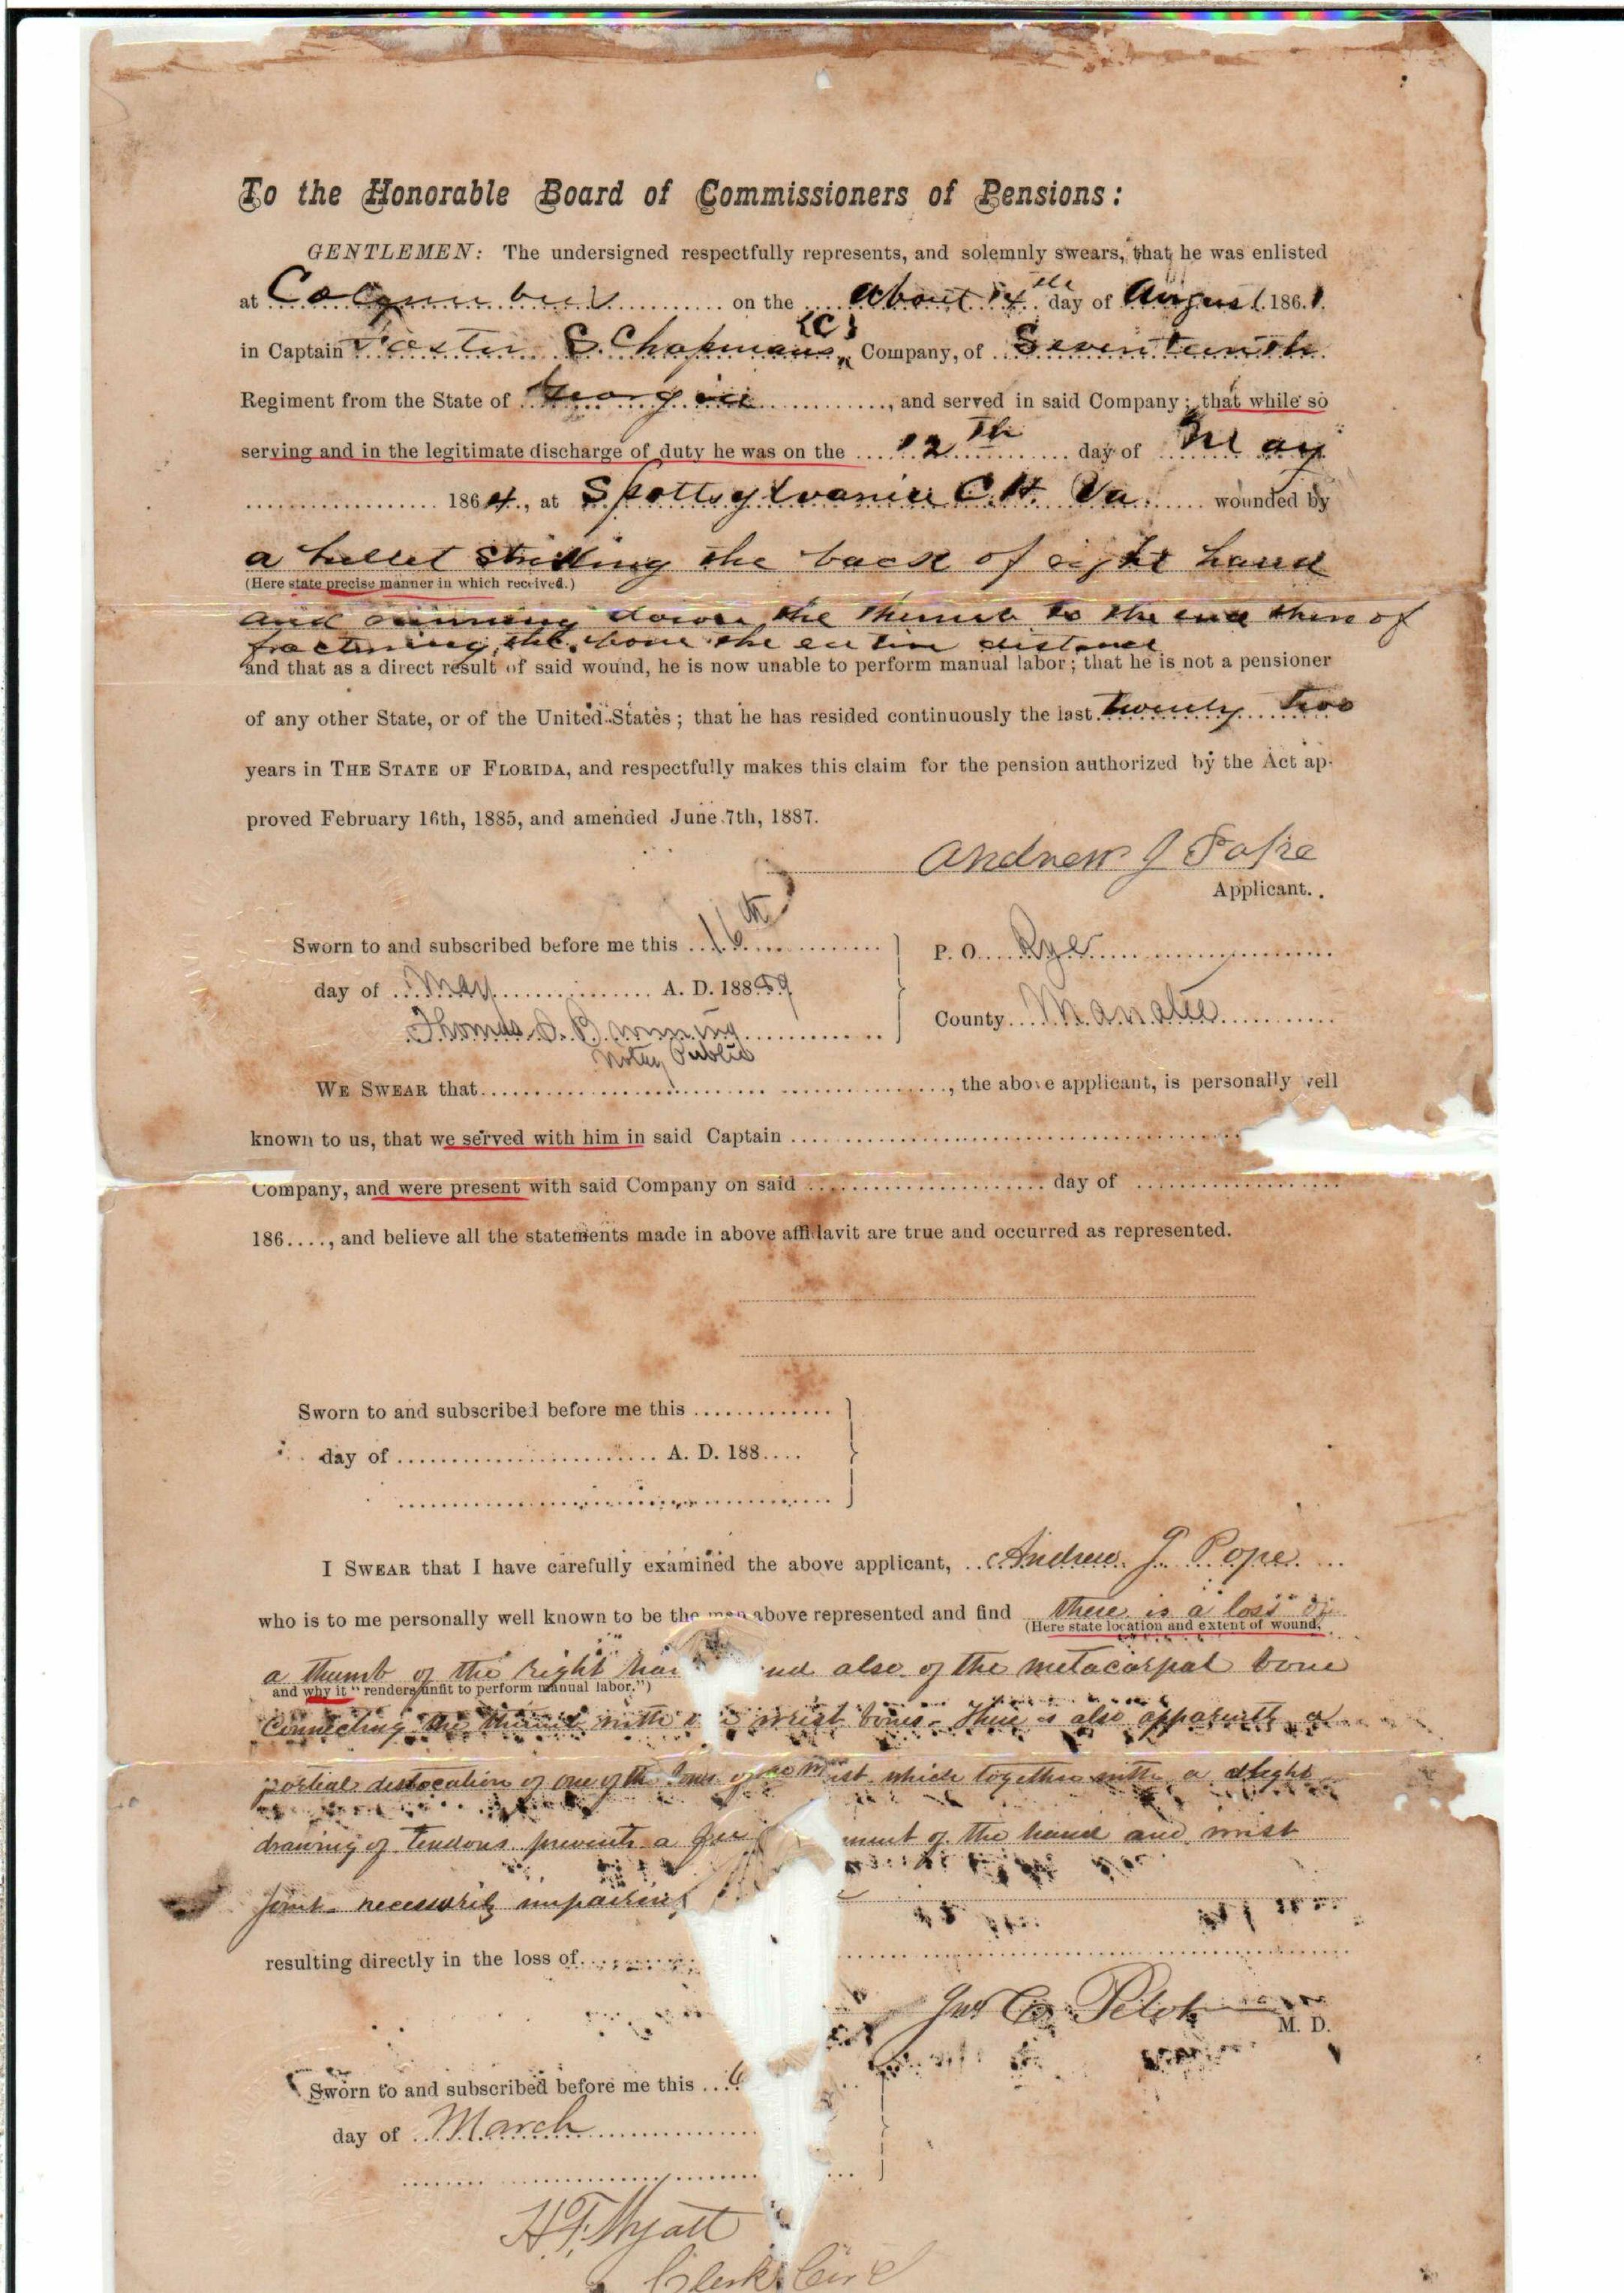 To the Honorable Board of Commissioners of Pensions:
GENTLEMEN: The undersigned respectfully represents, and solemnly swears, that he was enlisted
at Columbus on the about 14th day of August 1861.
in Captain S. Chapmans (C) Company, of Seventeenth
Regiment from the State of Georgia, and served in said Company; that while so
serving and in the legitimate discharge of duty he was on the 12th day of May
1864, at Spottsylvania C.H. Va wounded by
a bullet striking the back of right hand
(Here state precise manner in which received.)
and running down the thumb to the end there of
fracturing the bone the entire distance
and that as a direct result of said wound, he is now unable to perform manual labor; that he is not a pensioner
of any other State, or of the United States; that he has resided continuously the last twenty two
years in THE STATE OF FLORIDA, and respectfully makes this claim for the pension authorized by the Act ap-
proved February 16th, 1885, and amended June 7th, 1887.
Andrew J Pope
Applicant.
Sworn to and subscribed before me this 16th
P. O. Rye
day of May A. D. 188 89
County Manatee
Thomas
Notary Public
WE SWEAR that , the above applicant, is personally well
known to us, that we served with him in said Captain
Company, and were present with said Company on said day of
186...., and believe all the statements made in above affidavit are true and occurred as represented.
Sworn to and subscribed before me this
day of A. D. 188....
I SWEAR that I have carefully examined the above applicant, Andrew J. Pope
who is to me personally well known to be the man above represented and find there is a loss of
(Here state location and extent of wound,
a thumb of the right also of the metacarpal bone
and why it "renders unfit to perform manual labor.")
connecting the thumb with wrist bones. There is also apparently a
partial dislocation of one of the bones of the wrist which together with a slight
drawing of tendons prevents a of the hand and wrist
joint necessarily impairing
resulting directly in the loss of
Jno C. Pelot
M. D.
Sworn to and subscribed before me this 6
day of March
H.F. Wyatt
Clerk Circ